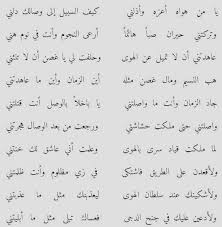 يا من هواه أعزه وأذلني كيف السبيل إلى وصالك دلني
وتركتني حيران صباً هائماً أرعى النجوم وأنت في نوم هني
عاهدتني أن لا تميل عن الهوى وحلفت لي يا غصن أن لا تنثني
هب النسيم ومال غصن مثله أين الزمان وأين ما عاهدتني
جاد الزمان وأنت ما واصلتني يا باخلاً بالوصل أنت قتلتني
واصلتني حتى ملكت حشاشتي ورجعت من بعد الوصال هجرتني
لما ملكت قياد سري بالهوى وعلمت أني عاشق لك خنتني
ولأقعدن على الطريق فاشتكي في زي مظلوم وأنت ظلمتني
ولأشكينك عند سلطان الهوى ليعذبنك مثل ما عذبتني
ولأدعين عليك في جنح الدجى فعساك تبلى مثل ما أبليتني